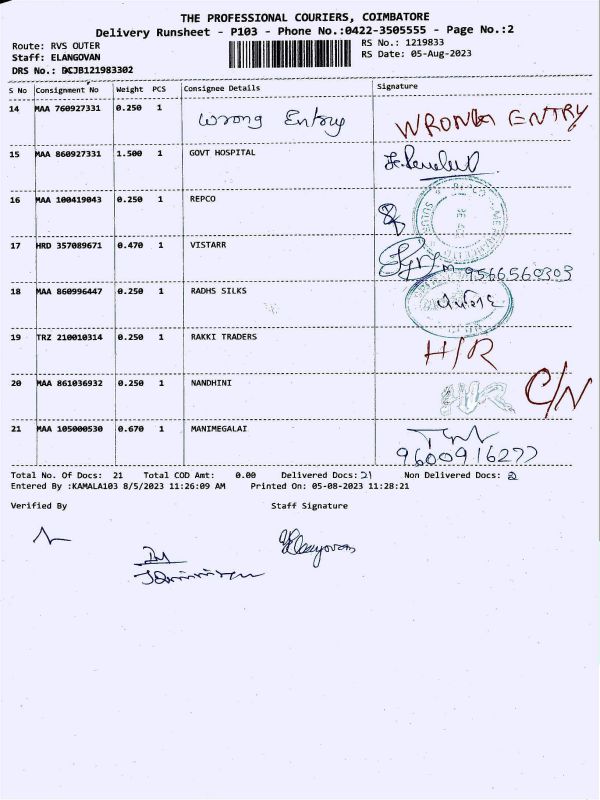 THE PROFESSIONAL COURIERS, COIMBATORE
Delivery Runsheet - P103 - Phone No.:0422-3505555 - Page No.:2
Route: RVS OUTER RS No.: 1219833
Staff: ELANGOVAN RS Date: 05-Aug-2023
DRS No.: DCJB121983302
S No Consignment No Weight PCS Consignee Details Signature
14 MAA 760927331 0.250 1 Wrong Entry WRONG ENTRY
15 MAA 860927331 1.500 1 GOVT HOSPITAL
16 MAA 100419043 0.250 1 REPCO
17 HRD 357089671 0.470 1 VISTARR 9566560303
18 MAA 860996447 0.250 1 RADHS SILKS
19 TRZ 210010314 0.250 1 RAKKI TRADERS H/R
20 MAA 861036932 0.250 1 NANDHINI H/R C/N
21 MAA 105000530 0.670 1 MANIMEGALAI
Total No. Of Docs: 21 Total COD Amt: 0.00 Delivered Docs: 21 Non Delivered Docs: 2
Entered By :KAMALA103 8/5/2023 11:26:09 AM Printed On: 05-08-2023 11:28:21
Verified By Staff Signature
Elangovan